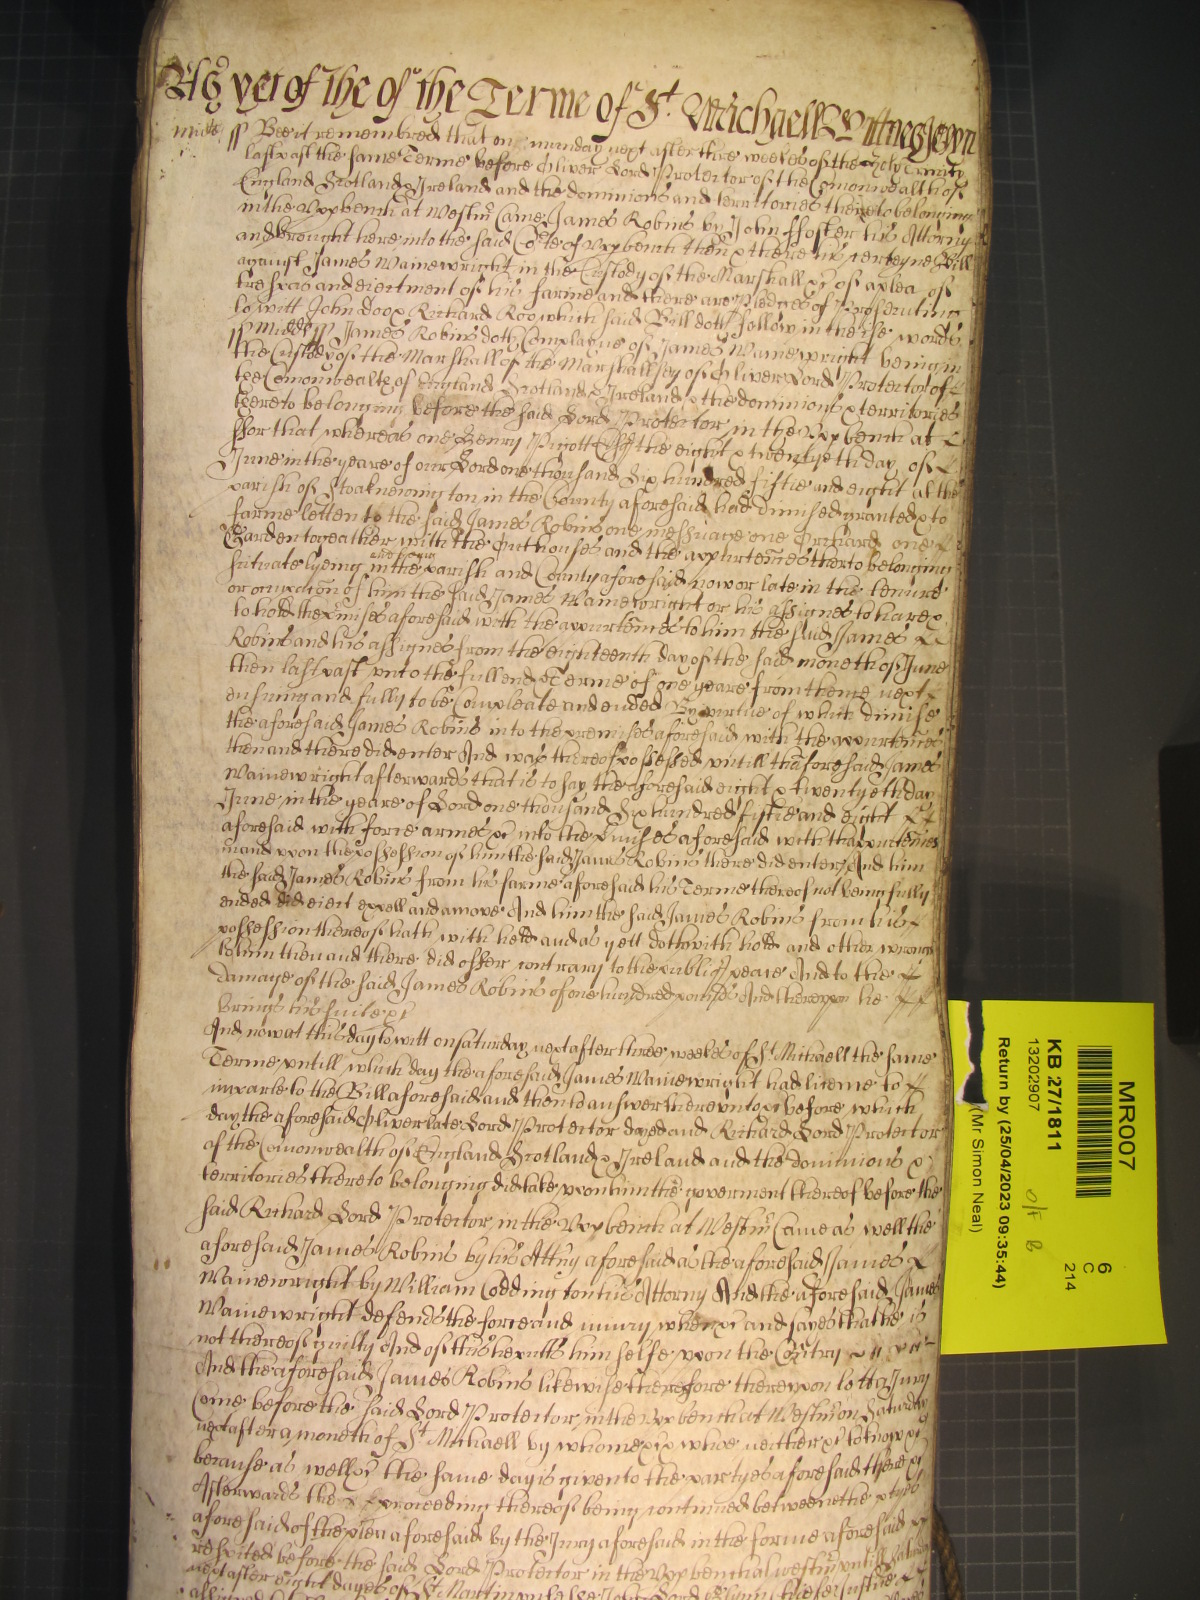 As yet of the of the Terme of St. Michaell Wittnes Glynn
Midds ss Bee it remembred that on munday next after three weekes of the Holy Trinity
last past the same Terme before Oliver Lord Protector of the Comonwealth of
England Scotland & Ireland and the dominions and territories thereto belonging
in the Vpp bench at Westmr Came James Robins by John ffoster his Attorny
and brought here into the said Co'te of Vpp bench then & there his certeyne Bill
against James Wainewright in the Custody of the Marshall &c of a plea of
trespas and eiectment of his farme and there are Pledges of Prosecuting
to witt John Doo & Richard Roo which said Bill doth follow in theise words
ss Midds ss James Robins doth Complayne of James Wainewright being in
the Custody of the Marshall of the Marshallsey of Oliver Lord Protector of
the Comonwealth of England Scotland & Ireland & the dominions & territories
thereto belonging before the said Lord Protector in the Vpp bench at
ffor that whereas one Henry Pigott Esqr the eight & twentyeth day of
June in the yeare of our Lord one thousand Six hundred fiftie and eight at the
parish of Stoake newington in the County aforesaid had dimised granted & to
farme letten to the said James Robins one messuage one Orchard one
Garden togeather with the Outhouses and the appurtences thereto belonging
situate lyeing and being in the parish and County aforesaid now or late in the tenure
or occupac'on of him the said James Wainewright or his assignes to have &
to hold the p'mises aforesaid with the appurtences to him the said James
Robins and his assignes from the eighteenth day of the said moneth of June
then last past vnto the full end & Terme of one yeare from thence next
ensuing and fully to be Compleate and ended By virtue of which dimise
the aforesaid James Robins into the premises aforesaid with the appurtences
then and there did enter And was thereof possessed vntill the aforesaid James
Wainewright afterwards that is to say the aforesaid eight & twentyeth day
June in the yeare of Lord one thousand Six hundred fiftie and eight
aforesaid with force armes &c into the p'mises aforesaid with thappurtences
in and vpon the possession of him the said James Robins there did enter And him
the said James Robins from his farme aforesaid his Terme thereof not being fully
ended did eiect expell and amove And him the said James Robins from his
possession thereof hath with held and as yett doth with hold and other wrongs
to him then and there did offer contrary to the publiq peace And to the
damage of the said James Robins of one hundred pounds And therevpon he
brings his suite &c
And now at this day to witt on saturday next after three weekes of St Michaell the same
Terme vntill which day the aforesaid James Wainewright had licence to
imparle to the Bill aforesaid and then to answer therevnto &c before which
day the aforesaid Oliver late Lord Protector dyed and Richard Lord Protector
of the Comonwealth of England Scotland & Ireland and the dominions &
territories thereto belonging did take vpon him the goverment thereof before the
said Richard Lord Protector in the Vpp bench at Westmr Came as well the
aforesaid James Robins by his Attny aforesaid as the aforesaid James
Wainewright by William Coddington his Attorny And the aforesaid James
Wainewright defends the force and iniury when &c and sayes that he is
not thereof guilty And of this he putts him selfe vpon the Co'try
And the aforesaid James Robins likewise therefore therevpon lett a Jury
Come before the said Lord Protector in the Vpp bench at Westmr on Saturday
next after a moneth of St Michaell by whome &c & who neither &c to know &c
because as well &c the same day is given to the partyes aforesaid there &c
Afterwards the proceeding thereof being continued betweene the p'tyes
aforesaid of the plea aforesaid by the Jury aforesaid in the forme aforesaid
respited before the said Lord Protector in the Vpp bench at westmr vntill
next after eight dayes of St Martin vnlesse John Lord Glynn Cheife Justice
MR007
6
C
214
KB 27/1811
13202907
Return by (25/04/2023 09:35:44)
(Mr Simon Neal)